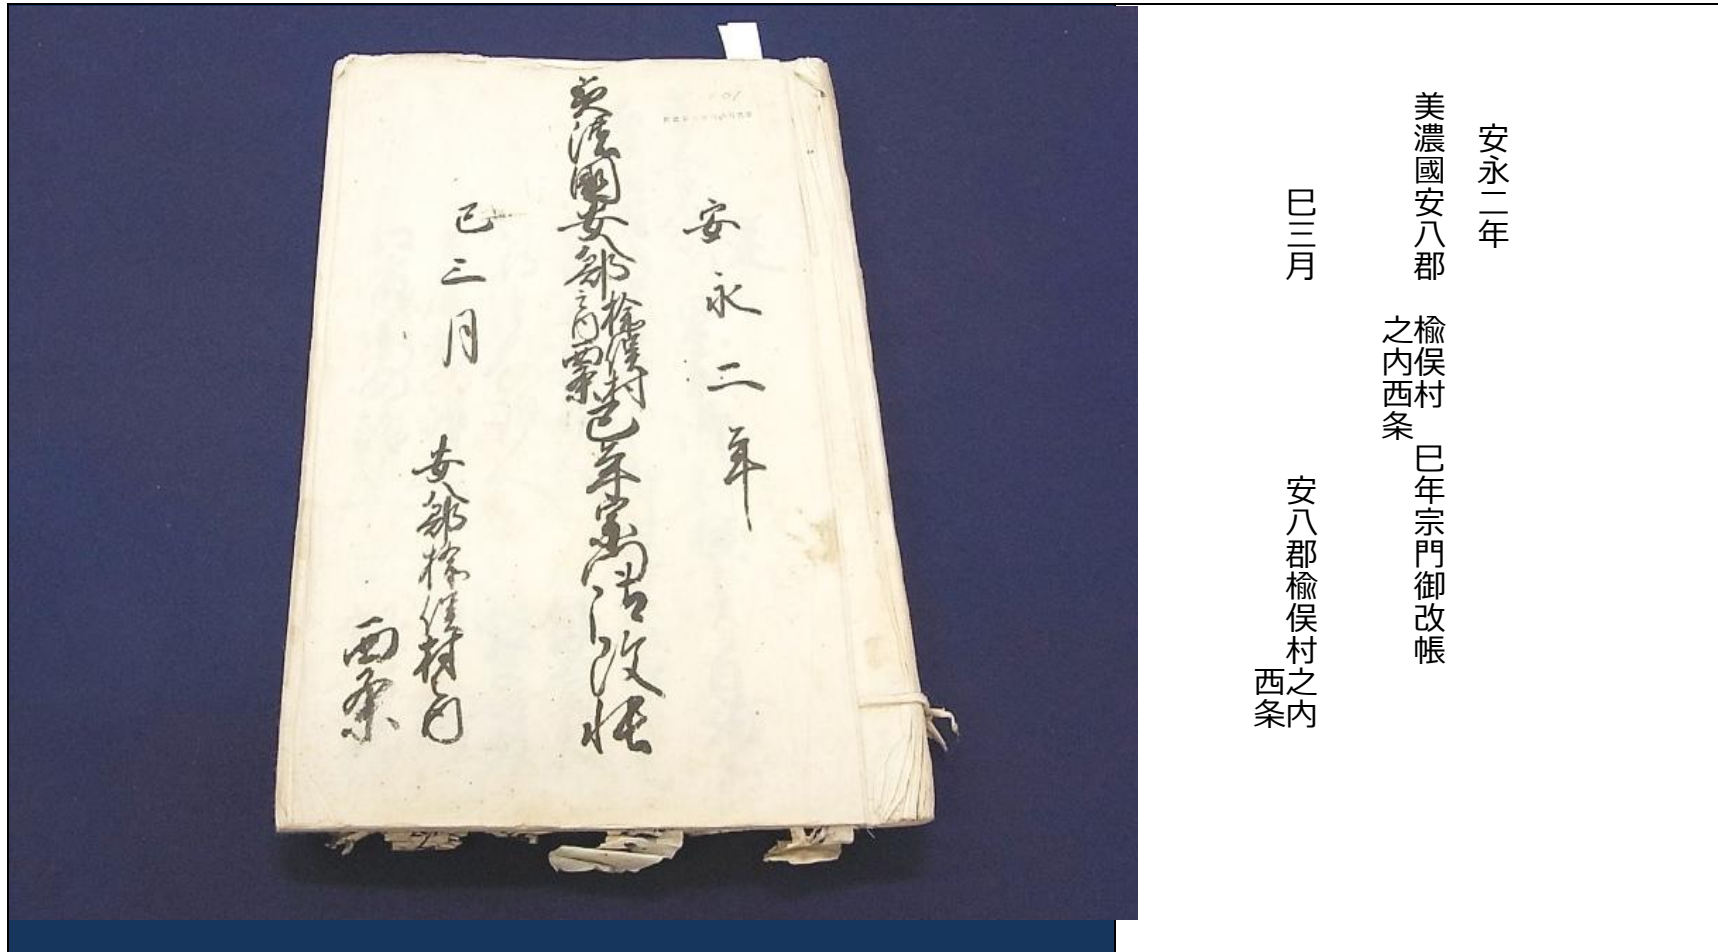 安永二年
美濃國安八郡
楡俣村
之内西条
巳年宗門御改帳
巳三月
安八郡楡俣村之内
西条
安永二年
美濃國安八郡
楡俣村
之内西条
巳年宗門御改帳
巳三月
安八郡楡俣村之内
西条